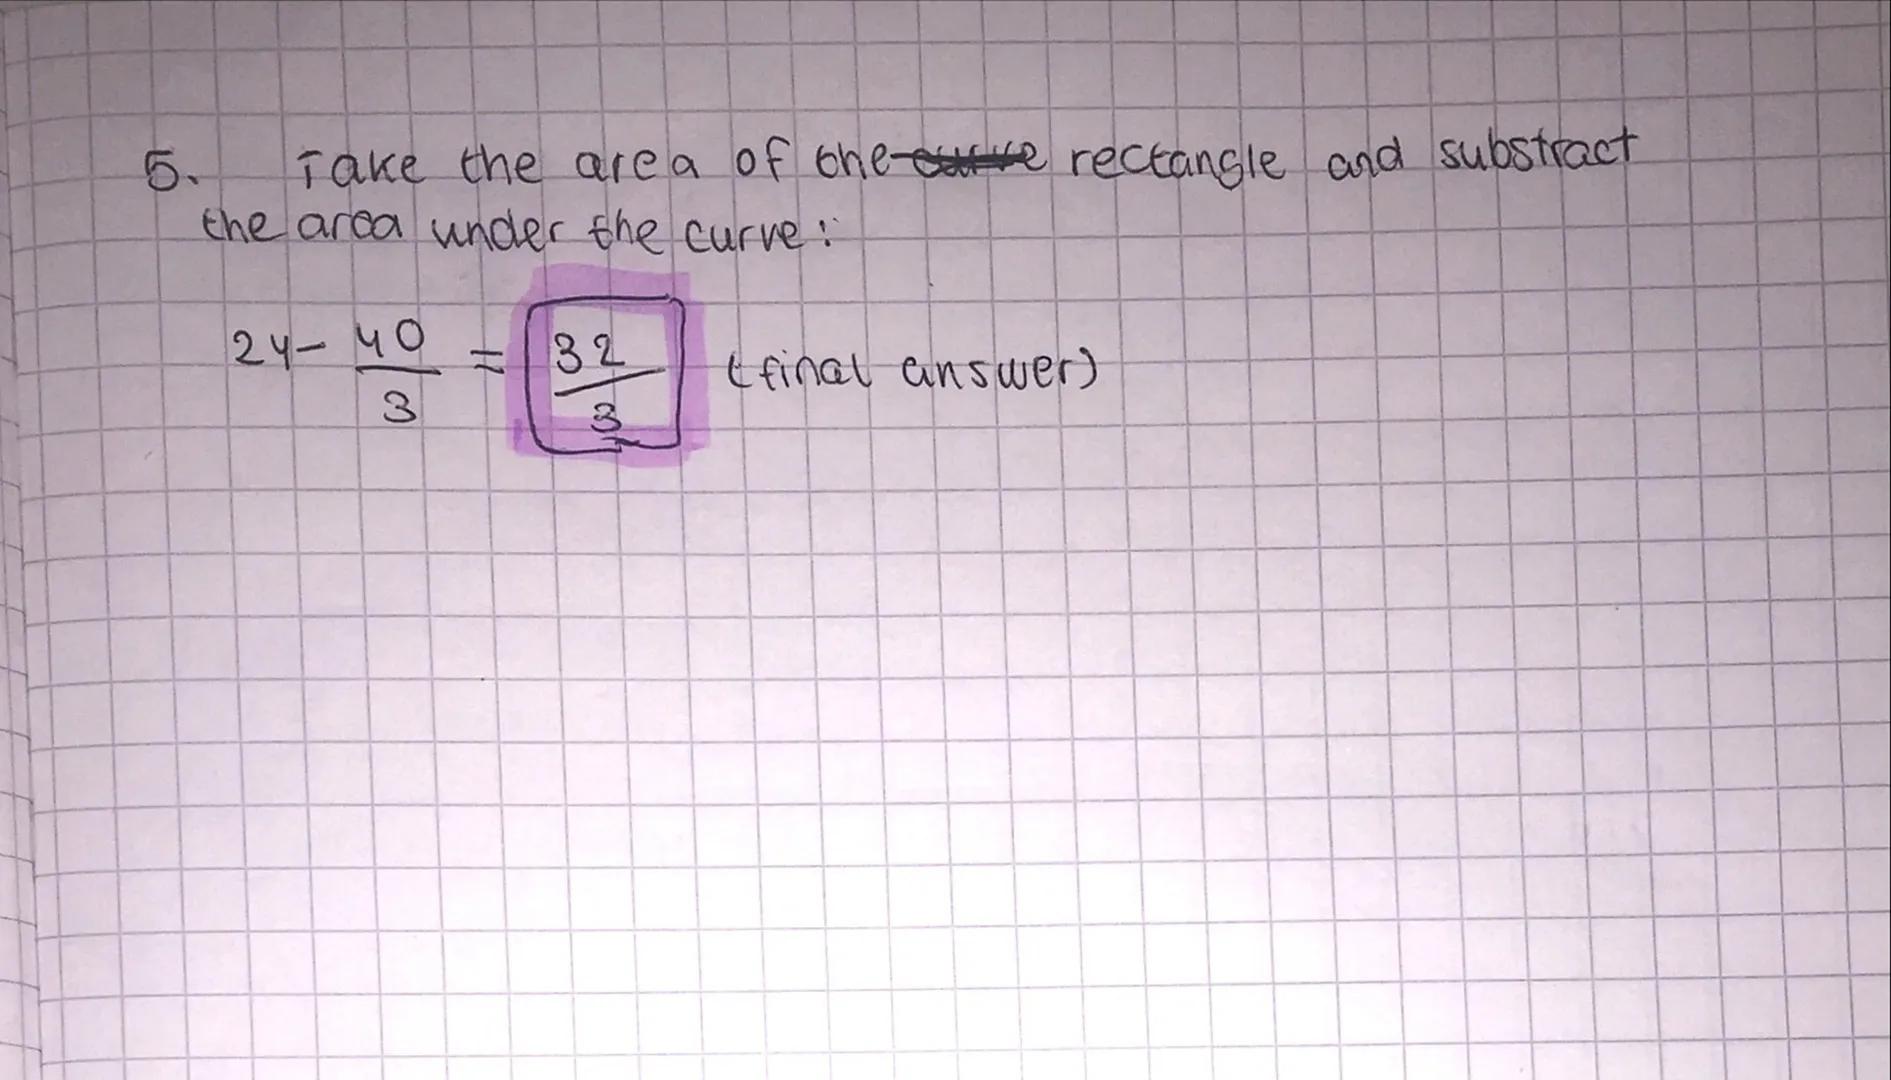 5. Take the area of the curve rectangle and substract
the area under the curve:
24 - 40/3 = 32/3 (final answer)